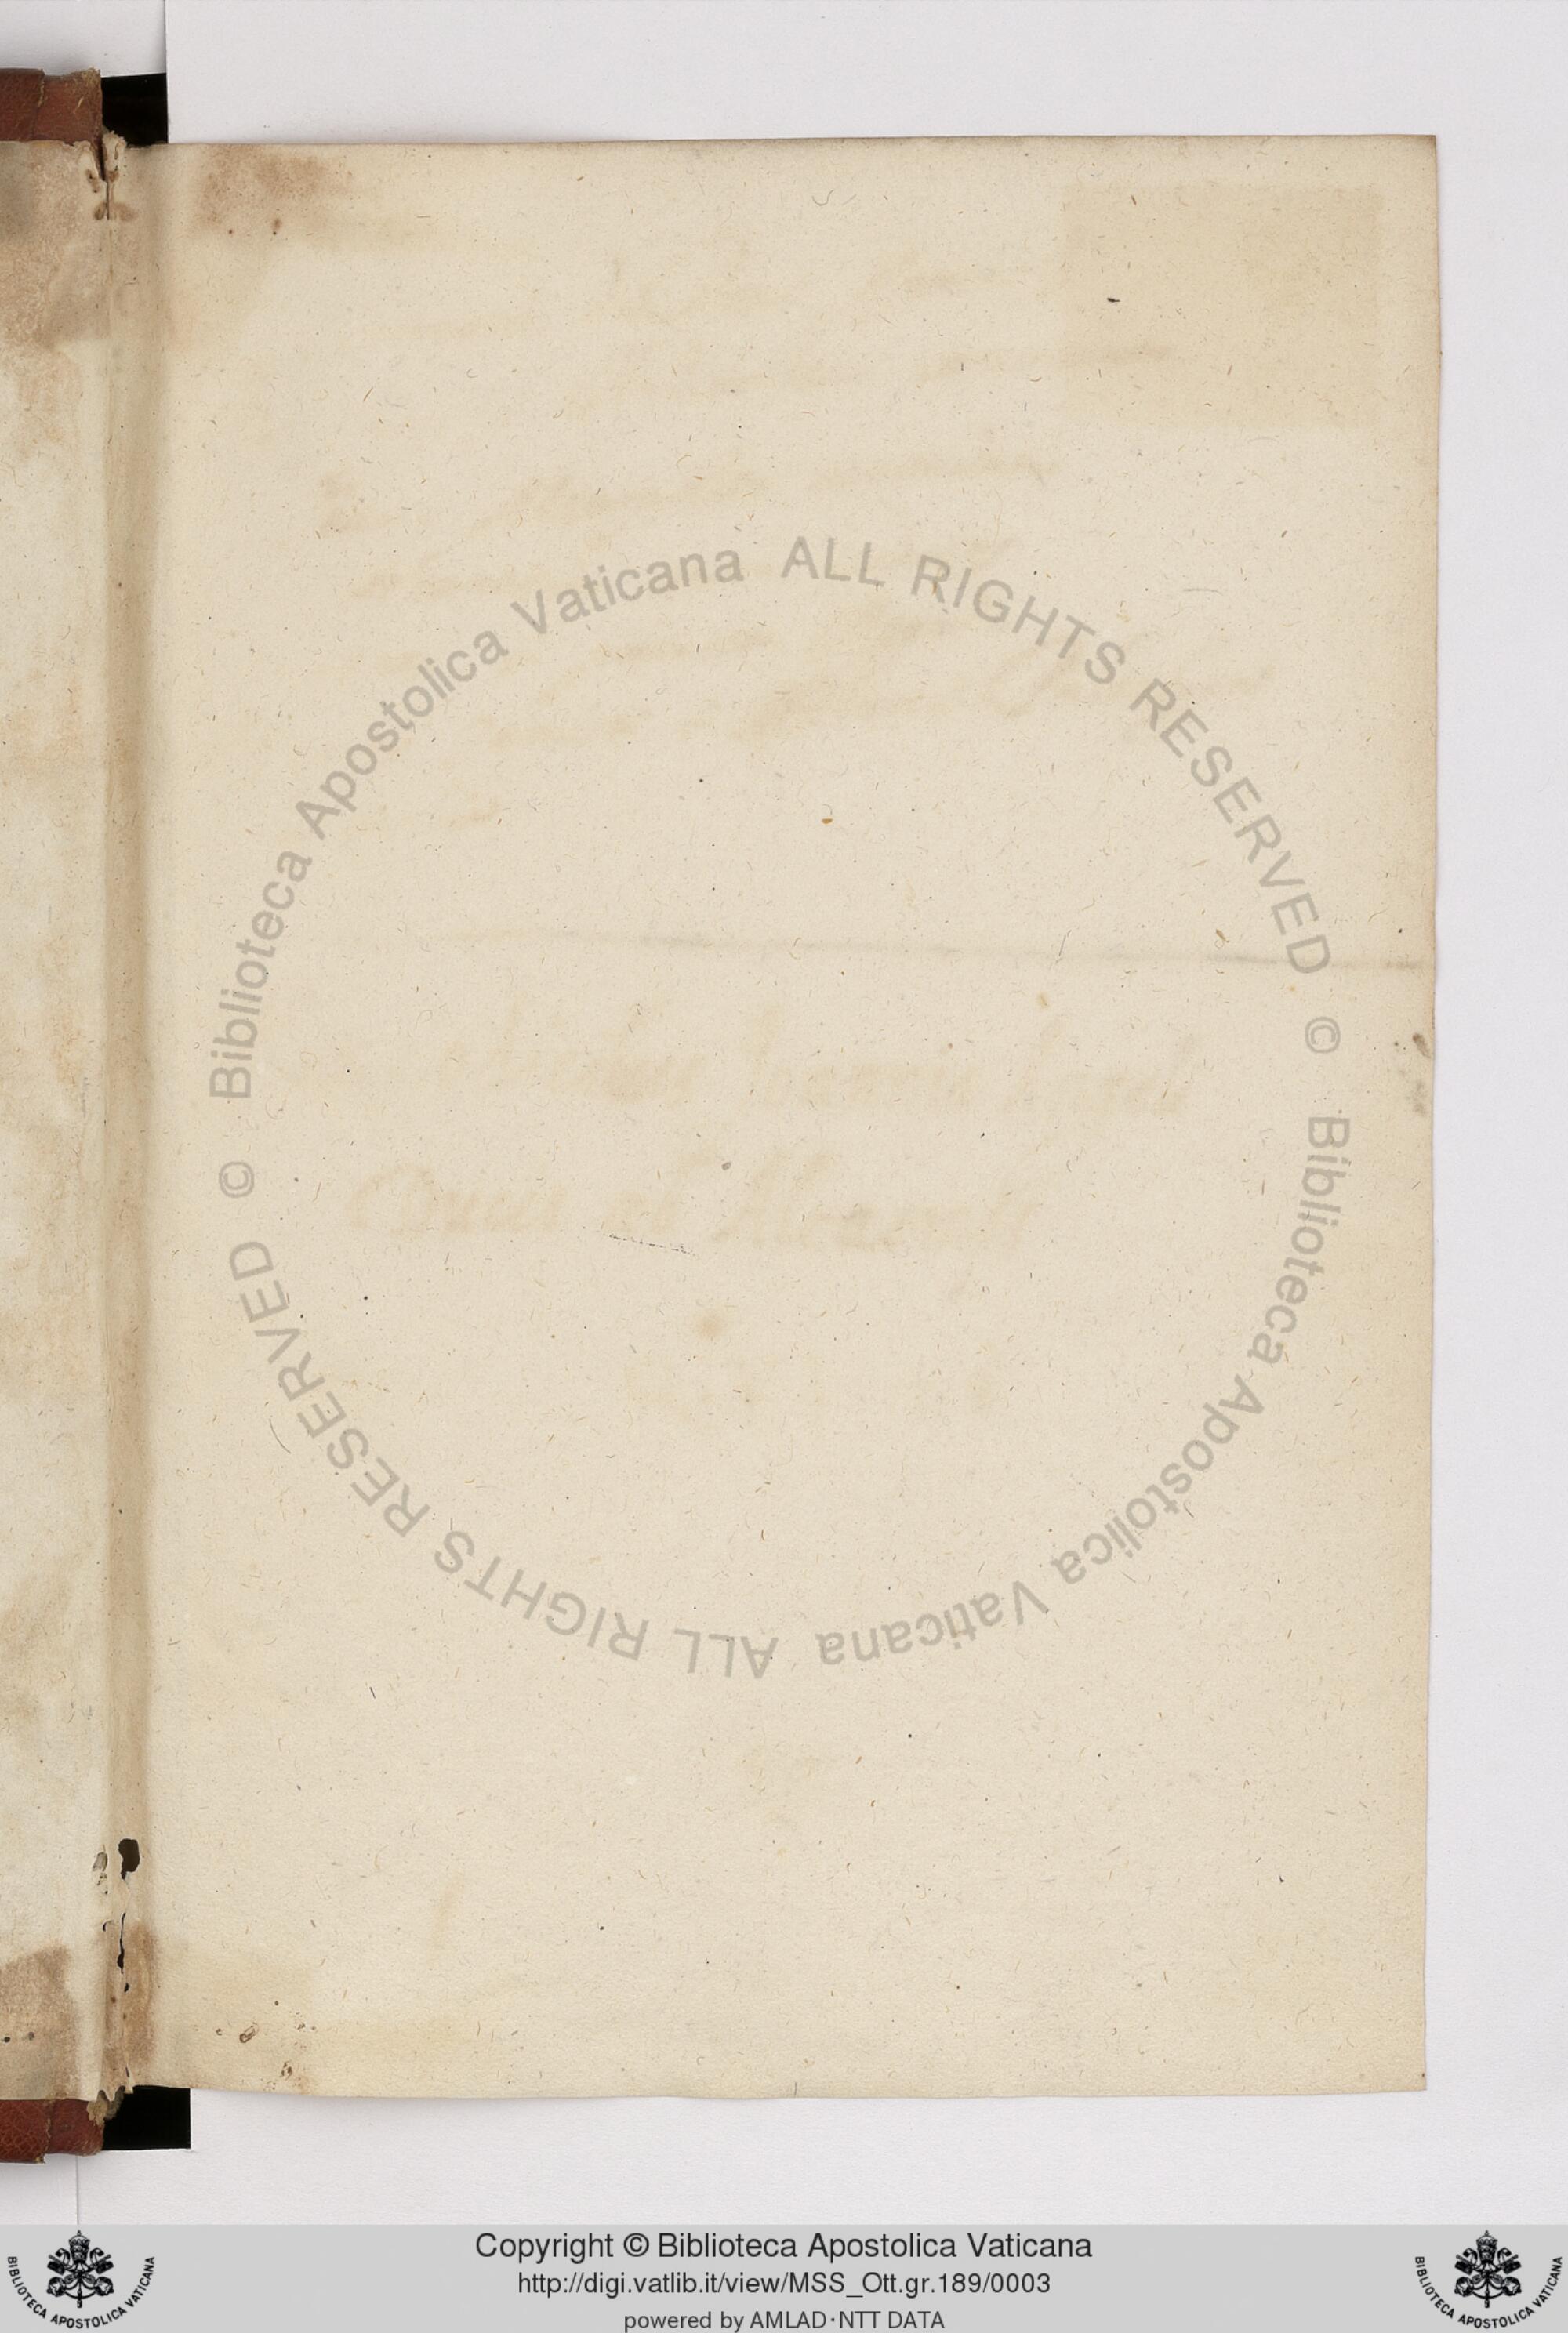 Biblioteca Apostolica Vaticana ALL RIGHTS RESERVED ©
Biblioteca Apostolica Vaticana ALL RIGHTS RESERVED ©
Copyright © Biblioteca Apostolica Vaticana
http://digi.vatlib.it/view/MSS_Ott.gr.189/0003
powered by AMLAD·NTT DATA
BIBLIOTECA APOSTOLICA VATICANA
BIBLIOTECA APOSTOLICA VATICANA